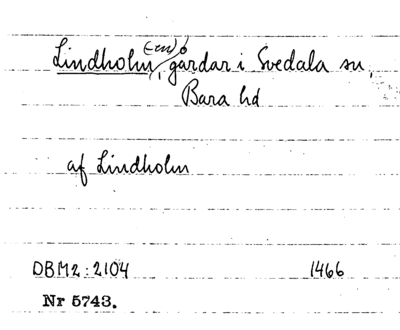 Lindholm (-en), gårdar i Svedala sn,
Bara hd
af Lindholm
DBM2:2104 1466
Nr 5743.